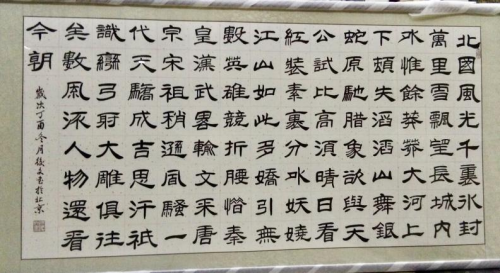 北國風光千裏冰封
萬里雪飄望長城內
外惟餘莽莽大河上
下頓失滔滔山舞銀
蛇原馳腊象欲與天
公試比高須晴日看
紅裝素裹分外妖嬈
江山如此多嬌引無
數英雄競折腰惜秦
皇漢武略輸文采唐
宗宋祖稍遜風騷一
代天驕成吉思汗祇
識彎弓射大雕俱往
矣數風流人物還看
今朝
歲次丁酉冬月文書於北京